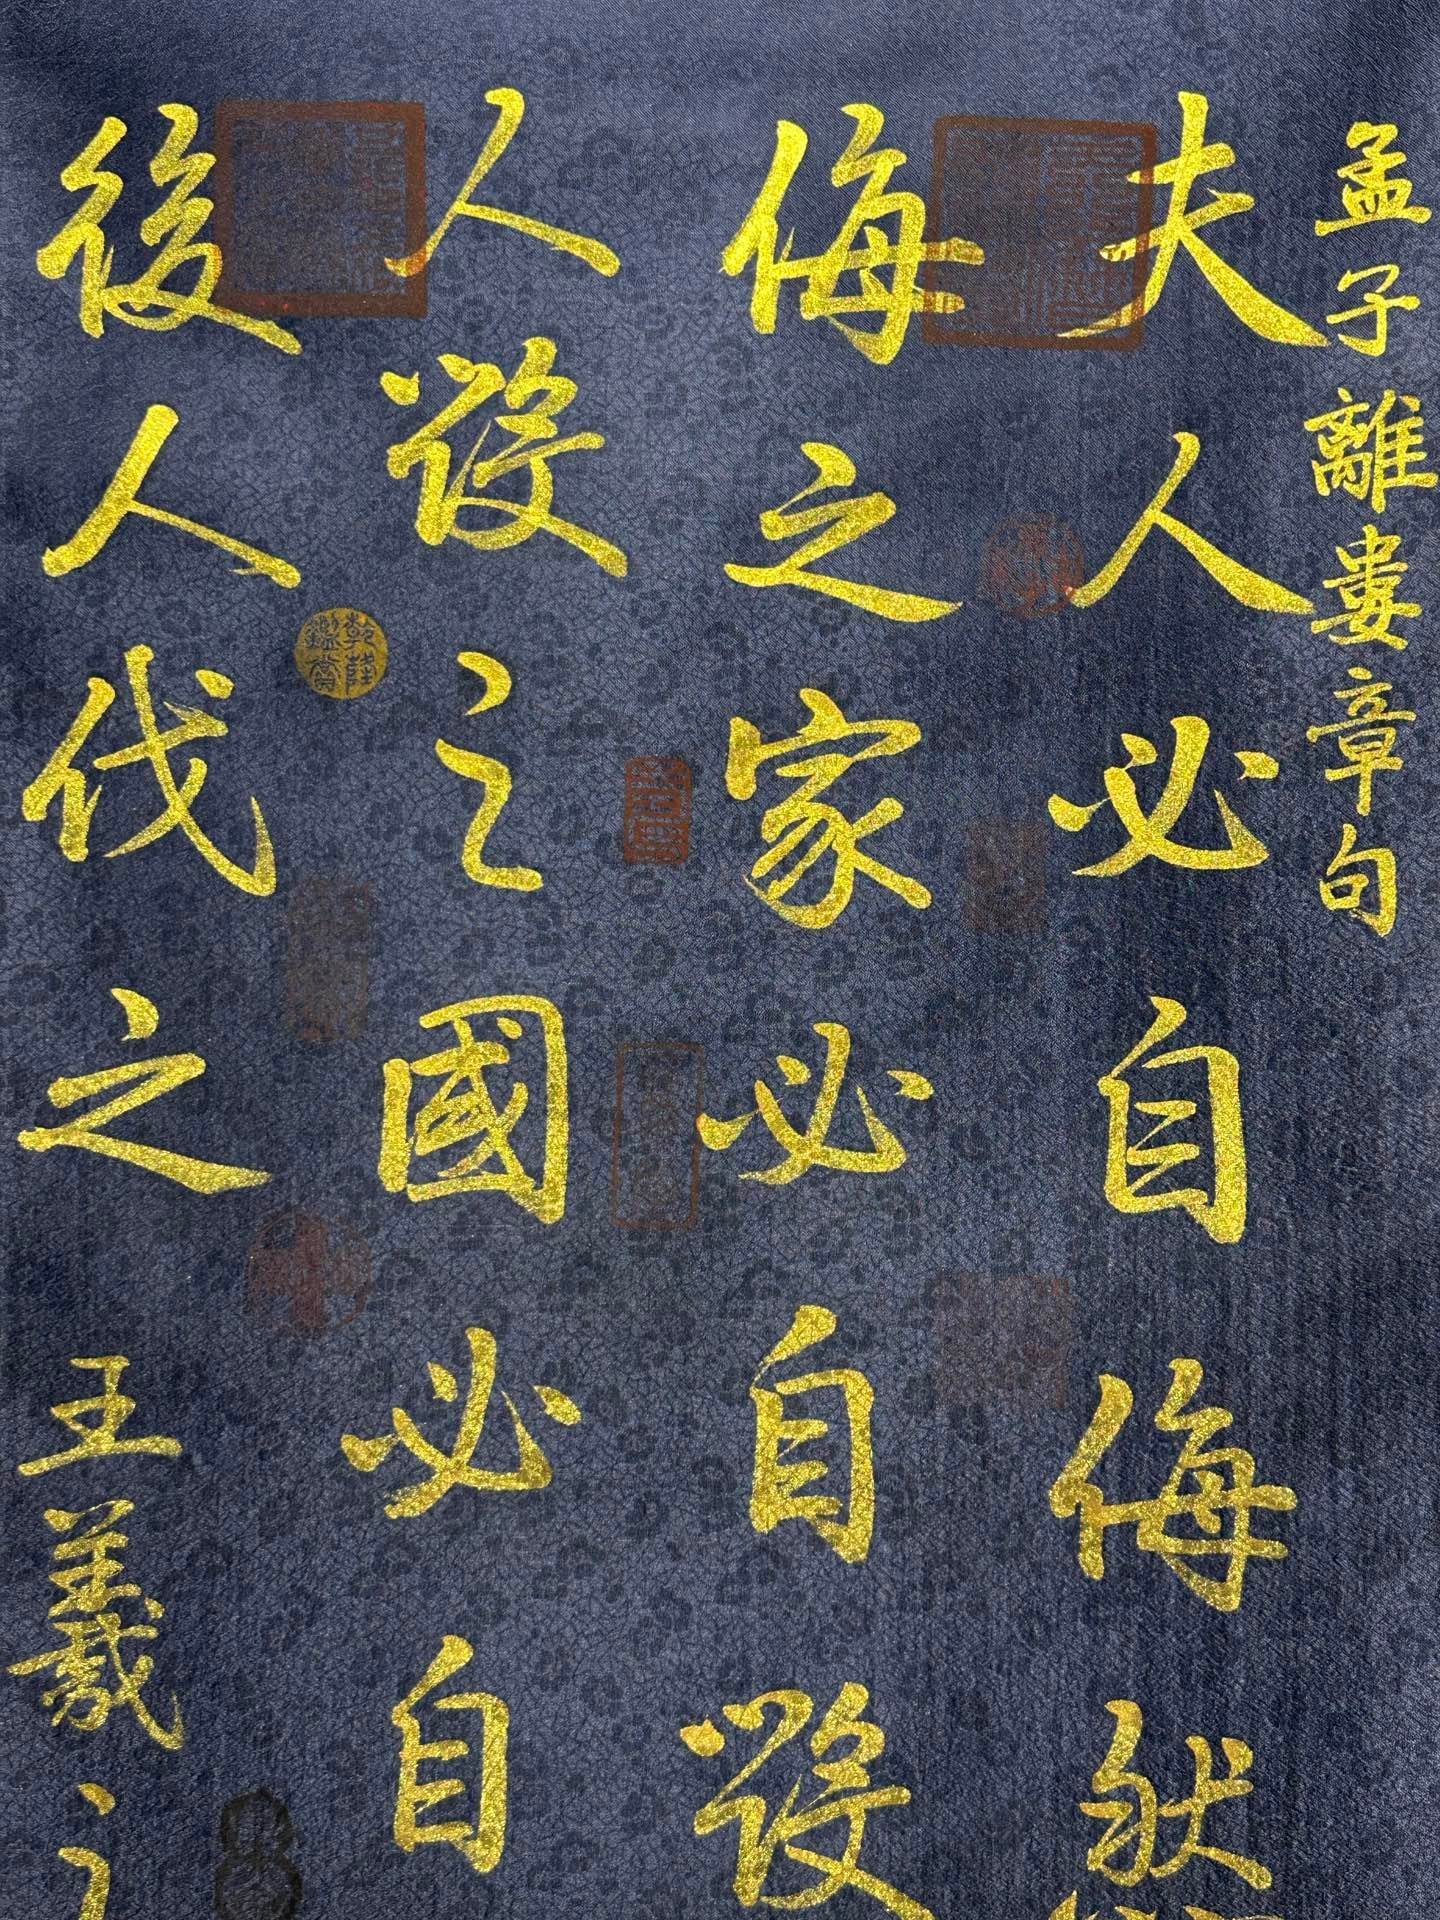 孟子離婁章句
夫人必自侮然
侮之家必自毀
人毀之國必自
後人伐之
王羲之
乾隆鑑賞